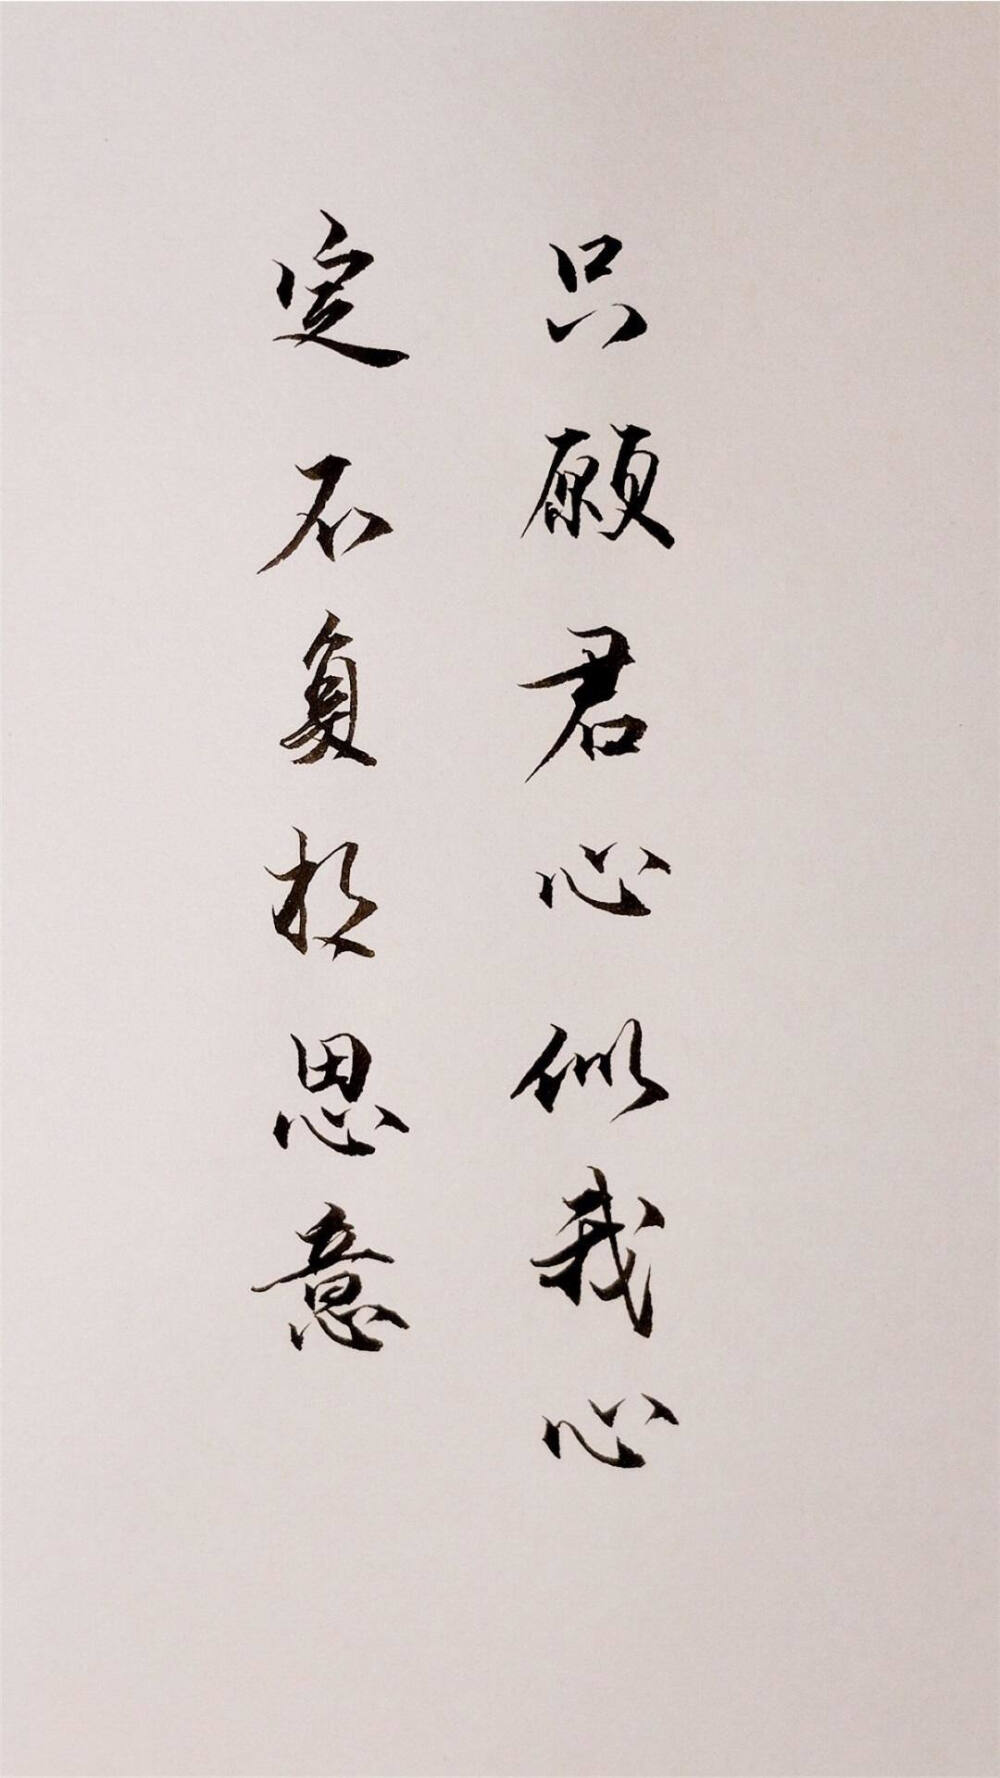 只愿君心似我心
定不复相思意